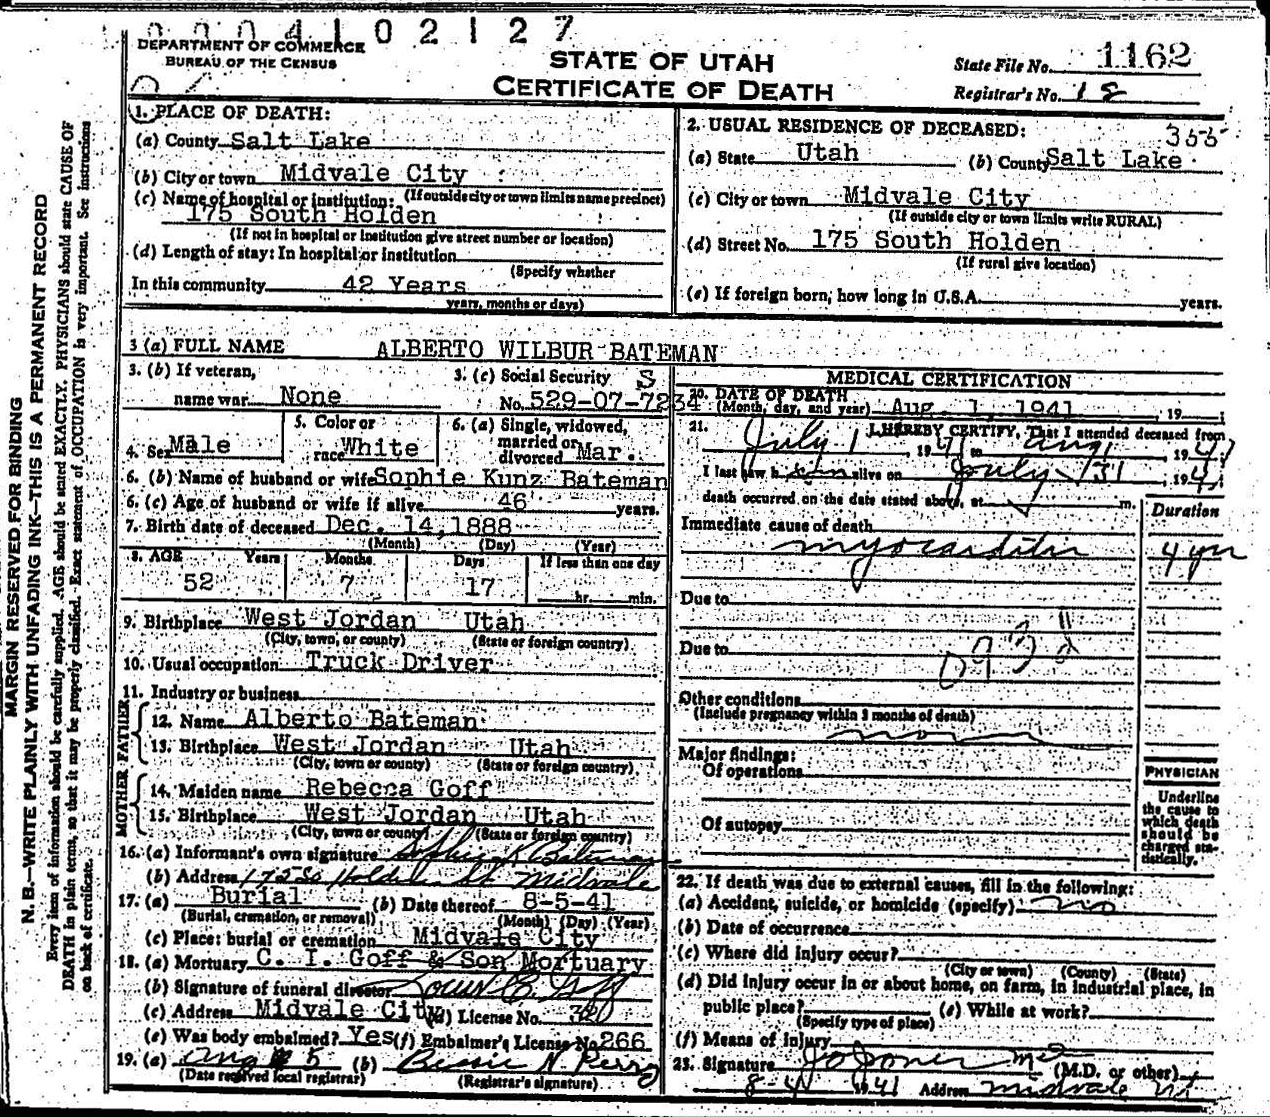 0004102127
DEPARTMENT OF COMMERCE
BUREAU OF THE CENSUS
STATE OF UTAH
CERTIFICATE OF DEATH
State File No. 1162
Registrar's No. 18
MARGIN RESERVED FOR BINDING
N. B.—WRITE PLAINLY WITH UNFADING INK—THIS IS A PERMANENT RECORD
Every item of information should be carefully supplied. AGE should be stated EXACTLY. PHYSICIANS should state CAUSE OF
DEATH in plain terms, so that it may be properly classified. Exact statement of OCCUPATION is very important. See instructions
on back of certificate.
1. PLACE OF DEATH:
(a) County Salt Lake
(b) City or town Midvale City
(If outside city or town limits name precinct)
(c) Name of hospital or institution:
175 South Holden
(If not in hospital or institution give street number or location)
(d) Length of stay: In hospital or institution
(Specify whether
In this community 42 Years
years, months or days)
2. USUAL RESIDENCE OF DECEASED:
355
(a) State Utah (b) County Salt Lake
(c) City or town Midvale City
(If outside city or town limits write RURAL)
(d) Street No. 175 South Holden
(If rural give location)
(e) If foreign born, how long in U.S.A. years.
3 (a) FULL NAME ALBERTO WILBUR BATEMAN
3. (b) If veteran,
name war None
3. (c) Social Security
No. 529-07-7234
4. Sex Male
5. Color or
race White
6. (a) Single, widowed,
married or
divorced Mar.
6. (b) Name of husband or wife Sophie Kunz Bateman
6. (c) Age of husband or wife if alive 46 years.
7. Birth date of deceased Dec. 14, 1888
(Month) (Day) (Year)
8. AGE Years Months Days If less than one day
52 7 17 hr. min.
9. Birthplace West Jordan Utah
(City, town, or county) (State or foreign country)
10. Usual occupation Truck Driver
11. Industry or business
FATHER
12. Name Alberto Bateman
13. Birthplace West Jordan Utah
(City, town or county) (State or foreign country)
MOTHER
14. Maiden name Rebecca Goff
15. Birthplace West Jordan Utah
(City, town or county) (State or foreign country)
16. (a) Informant's own signature Sophie K Bateman
(b) Address Holden St Midvale
17. (a) Burial (b) Date thereof 8-5-41
(Burial, cremation, or removal) (Month) (Day) (Year)
(c) Place: burial or cremation Midvale City
18. (a) Mortuary C. I. Goff & Son Mortuary
(b) Signature of funeral director Goff
(c) Address Midvale City (d) License No.
(e) Was body embalmed? Yes (f) Embalmer's License No. 266
19. (a) Aug 5 (b) Bessie N Perry
(Date received local registrar) (Registrar's signature)
MEDICAL CERTIFICATION
20. DATE OF DEATH
(Month, day, and year) Aug. 1, 1941, 19
21. I HEREBY CERTIFY, That I attended deceased from
July 1 1941 to Aug 1 1941
I last saw him alive on July 31, 1941
death occurred on the date stated above, at m.
Duration
Immediate cause of death
myocarditis 4 yrs
Due to
Due to
Other conditions
(Include pregnancy within 3 months of death)
Major findings:
Of operations
Of autopsy
PHYSICIAN
Underline
the cause to
which death
should be
charged sta-
tistically.
22. If death was due to external causes, fill in the following:
(a) Accident, suicide, or homicide (specify) no
(b) Date of occurrence
(c) Where did injury occur?
(City or town) (County) (State)
(d) Did injury occur in or about home, on farm, in industrial place, in
public place? (e) While at work?
(Specify type of place)
(f) Means of injury
23. Signature Jo Jones MD (M.D. or other)
8-4 1941 Address Midvale Ut